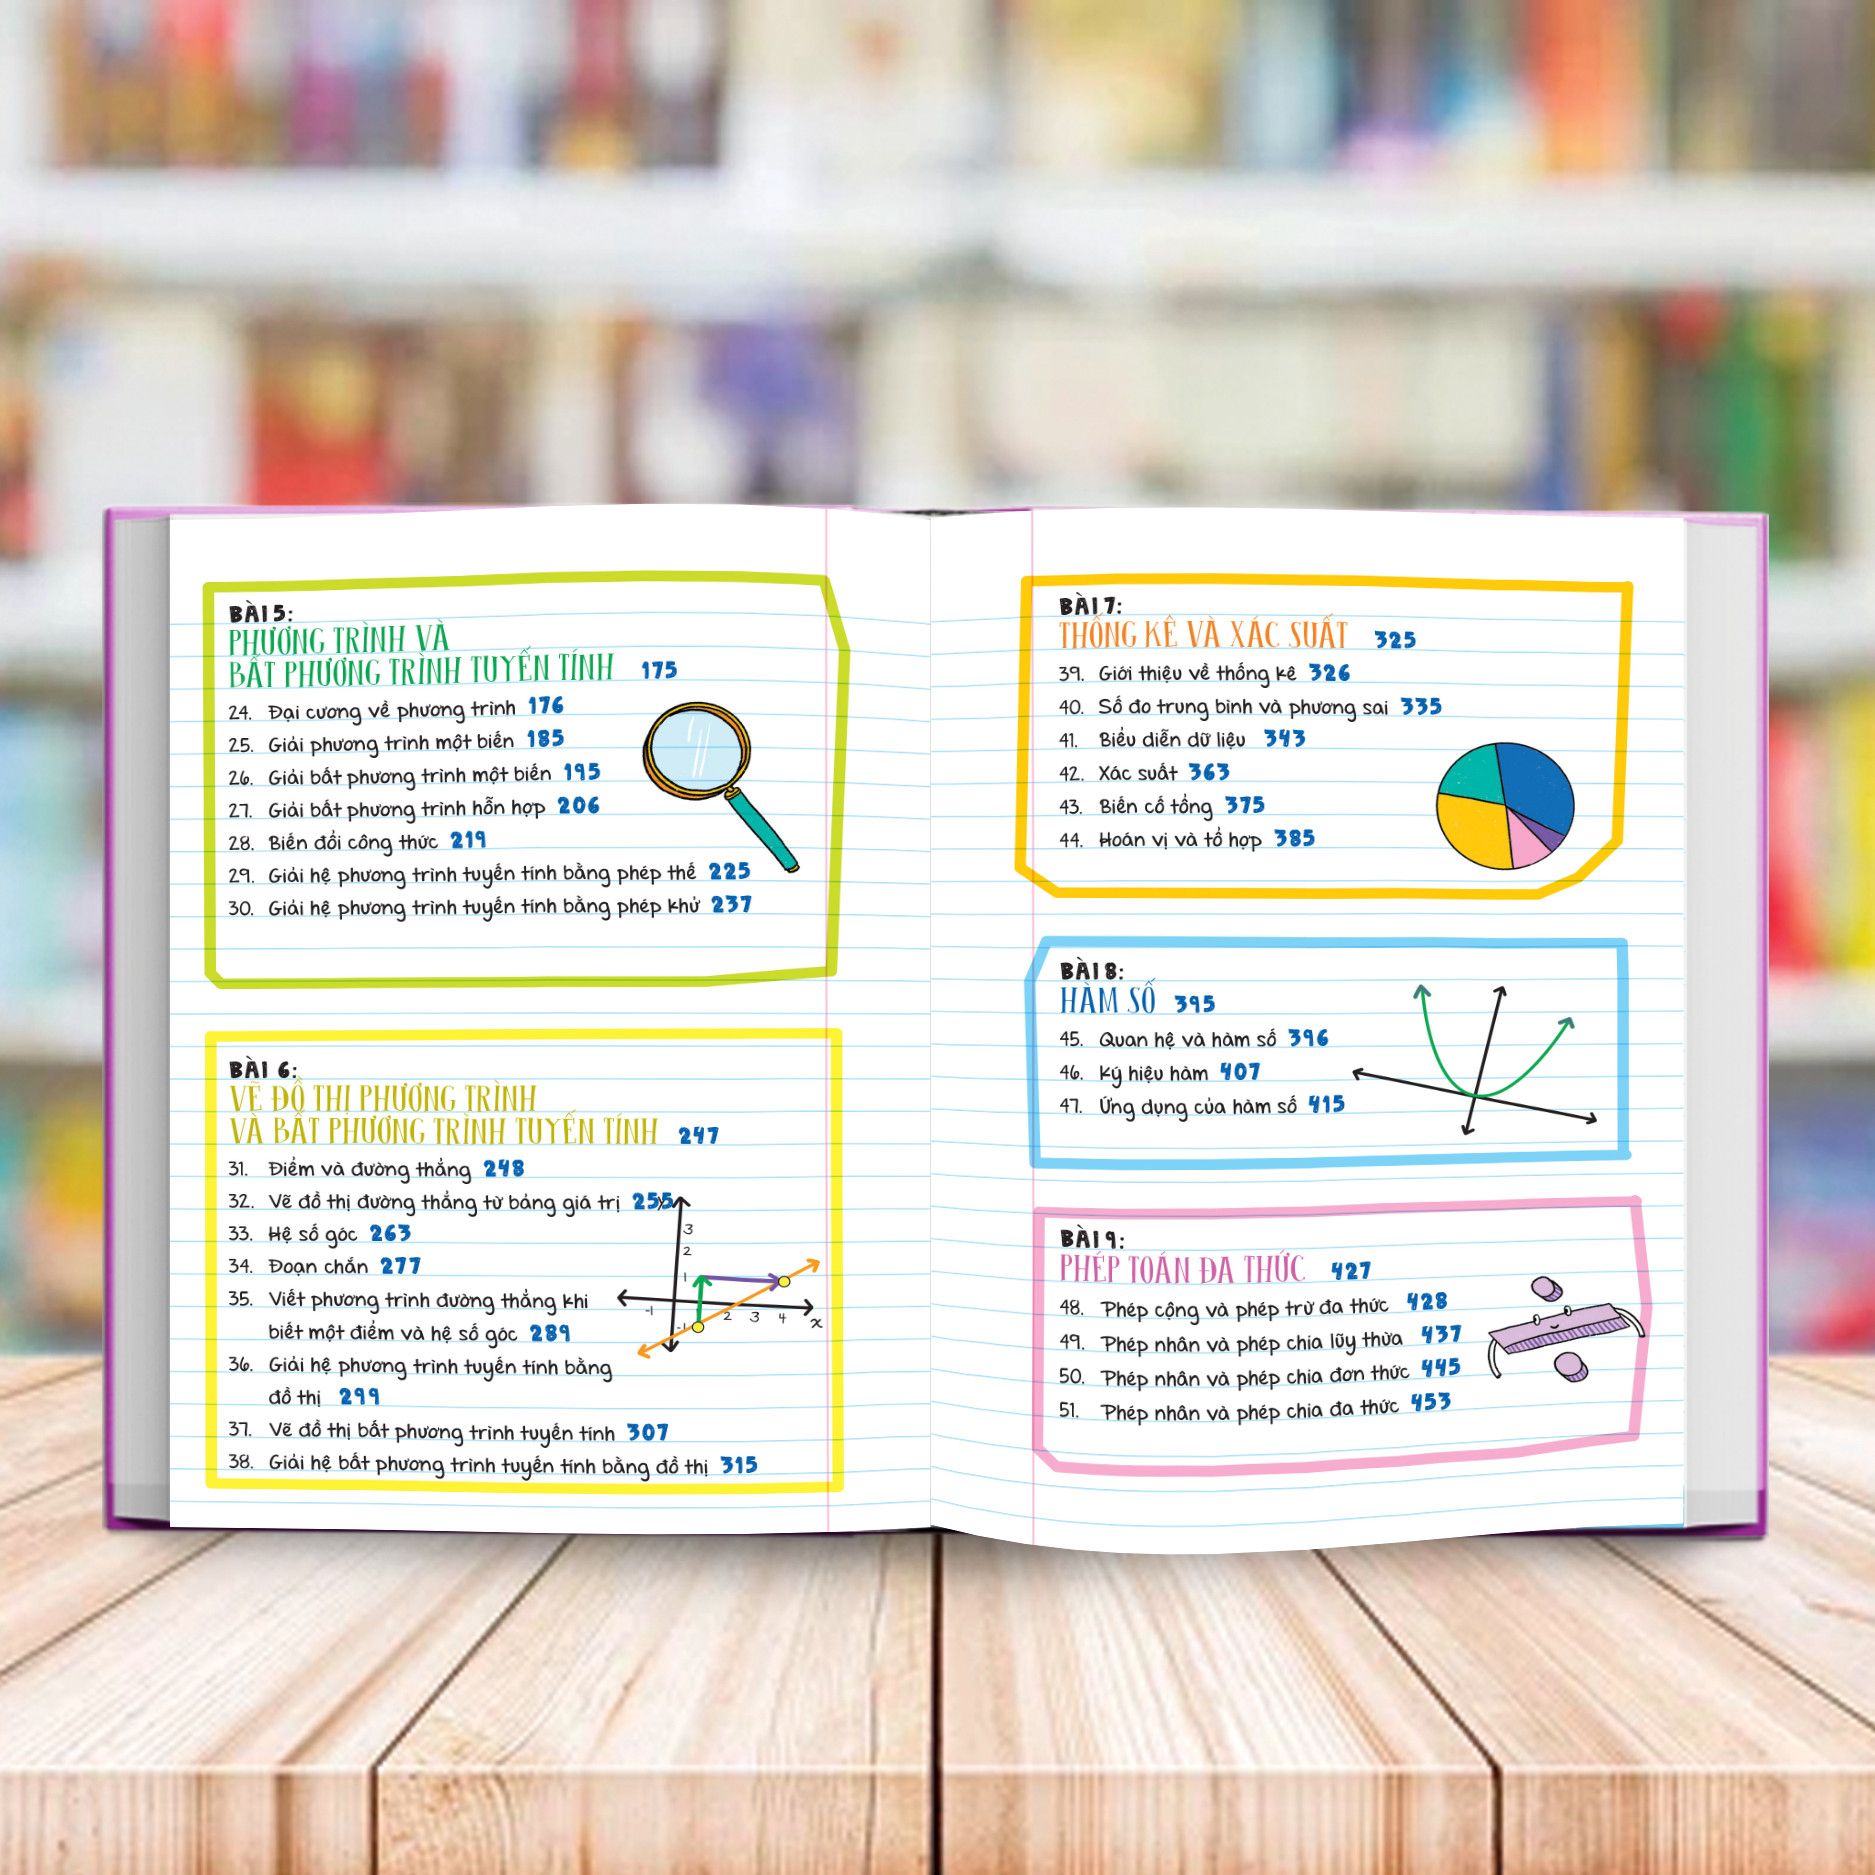 BÀI 5:
PHƯƠNG TRÌNH VÀ
BẤT PHƯƠNG TRÌNH TUYẾN TÍNH 175
24. Đại cương về phương trình 176
25. Giải phương trình một biến 185
26. Giải bất phương trình một biến 195
27. Giải bất phương trình hỗn hợp 206
28. Biến đổi công thức 219
29. Giải hệ phương trình tuyến tính bằng phép thế 225
30. Giải hệ phương trình tuyến tính bằng phép khử 237
BÀI 6:
VẼ ĐỒ THỊ PHƯƠNG TRÌNH
VÀ BẤT PHƯƠNG TRÌNH TUYẾN TÍNH 247
31. Điểm và đường thẳng 248
32. Vẽ đồ thị đường thẳng từ bảng giá trị 255
33. Hệ số góc 263
34. Đoạn chắn 277
35. Viết phương trình đường thẳng khi
biết một điểm và hệ số góc 289
36. Giải hệ phương trình tuyến tính bằng
đồ thị 299
37. Vẽ đồ thị bất phương trình tuyến tính 307
38. Giải hệ bất phương trình tuyến tính bằng đồ thị 315
y
3
2
1
-1 2 3 4 x
-1
BÀI 7:
THỐNG KÊ VÀ XÁC SUẤT 325
39. Giới thiệu về thống kê 326
40. Số đo trung bình và phương sai 335
41. Biểu diễn dữ liệu 343
42. Xác suất 363
43. Biến cố tổng 375
44. Hoán vị và tổ hợp 385
BÀI 8:
HÀM SỐ 395
45. Quan hệ và hàm số 396
46. Ký hiệu hàm 407
47. Ứng dụng của hàm số 415
BÀI 9:
PHÉP TOÁN ĐA THỨC 427
48. Phép cộng và phép trừ đa thức 428
49. Phép nhân và phép chia lũy thừa 437
50. Phép nhân và phép chia đơn thức 445
51. Phép nhân và phép chia đa thức 453